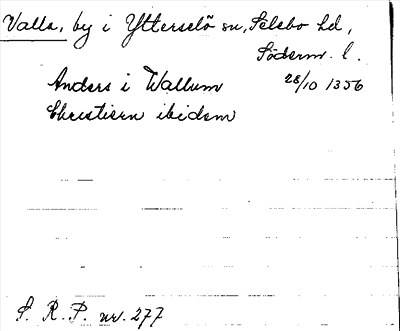 Valla, by i Ytterselö sn, Selebo hd,
Söderm. l.
Anders i Wallum 28/10 1356
Christiern ibidem
S. R. P. nr. 277